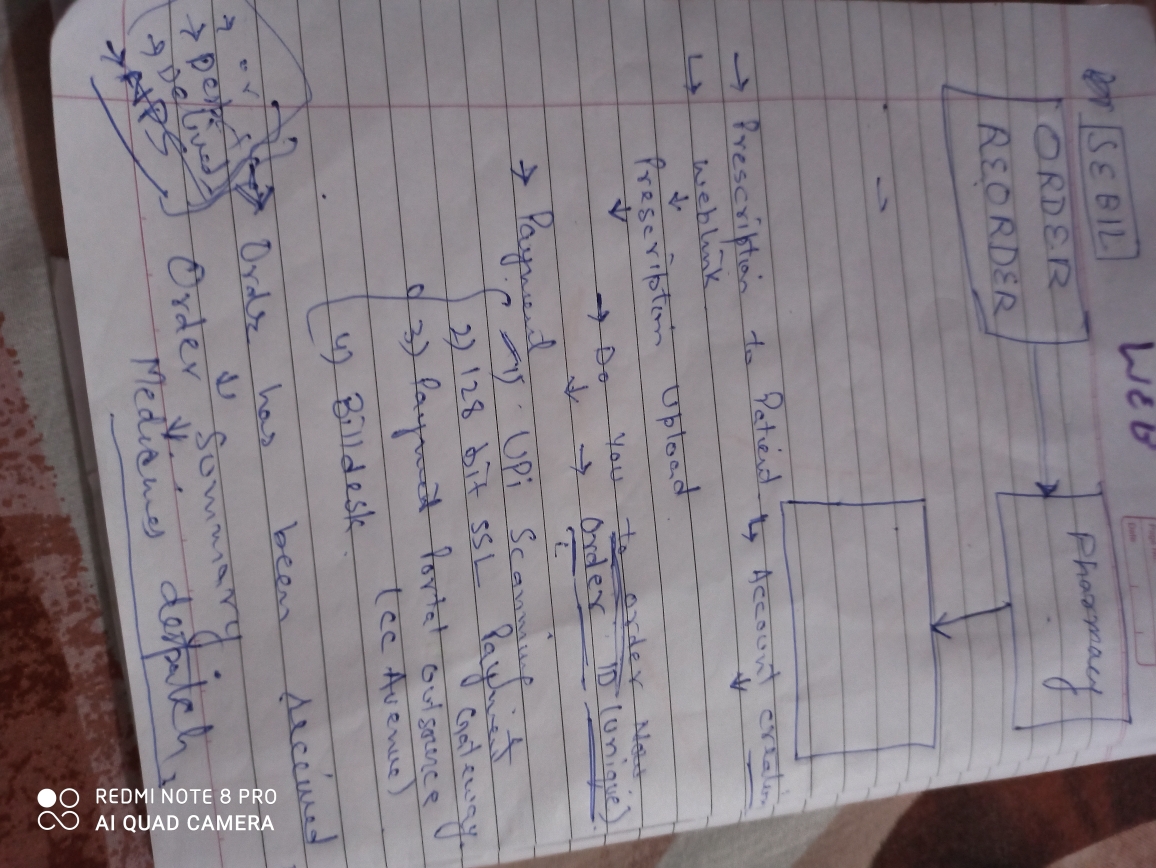 WEB
SEBIL
ORDER
REORDER
Pharmacy
→ Prescription to Patient ↳ Account creation
↳ weblink
↓
Prescription Upload
↓
→ Do You to order Now
↓ → Order ID (unique)
→ Payment
1) UPi Scanning Payment
2) 128 bit SSL Payment Gateway
3) Payment Portal outsource
(CC Avenue)
4) Billdesk
Order has been received
↓
Order Summary
↓
Medicines despatch
REDMI NOTE 8 PRO
AI QUAD CAMERA